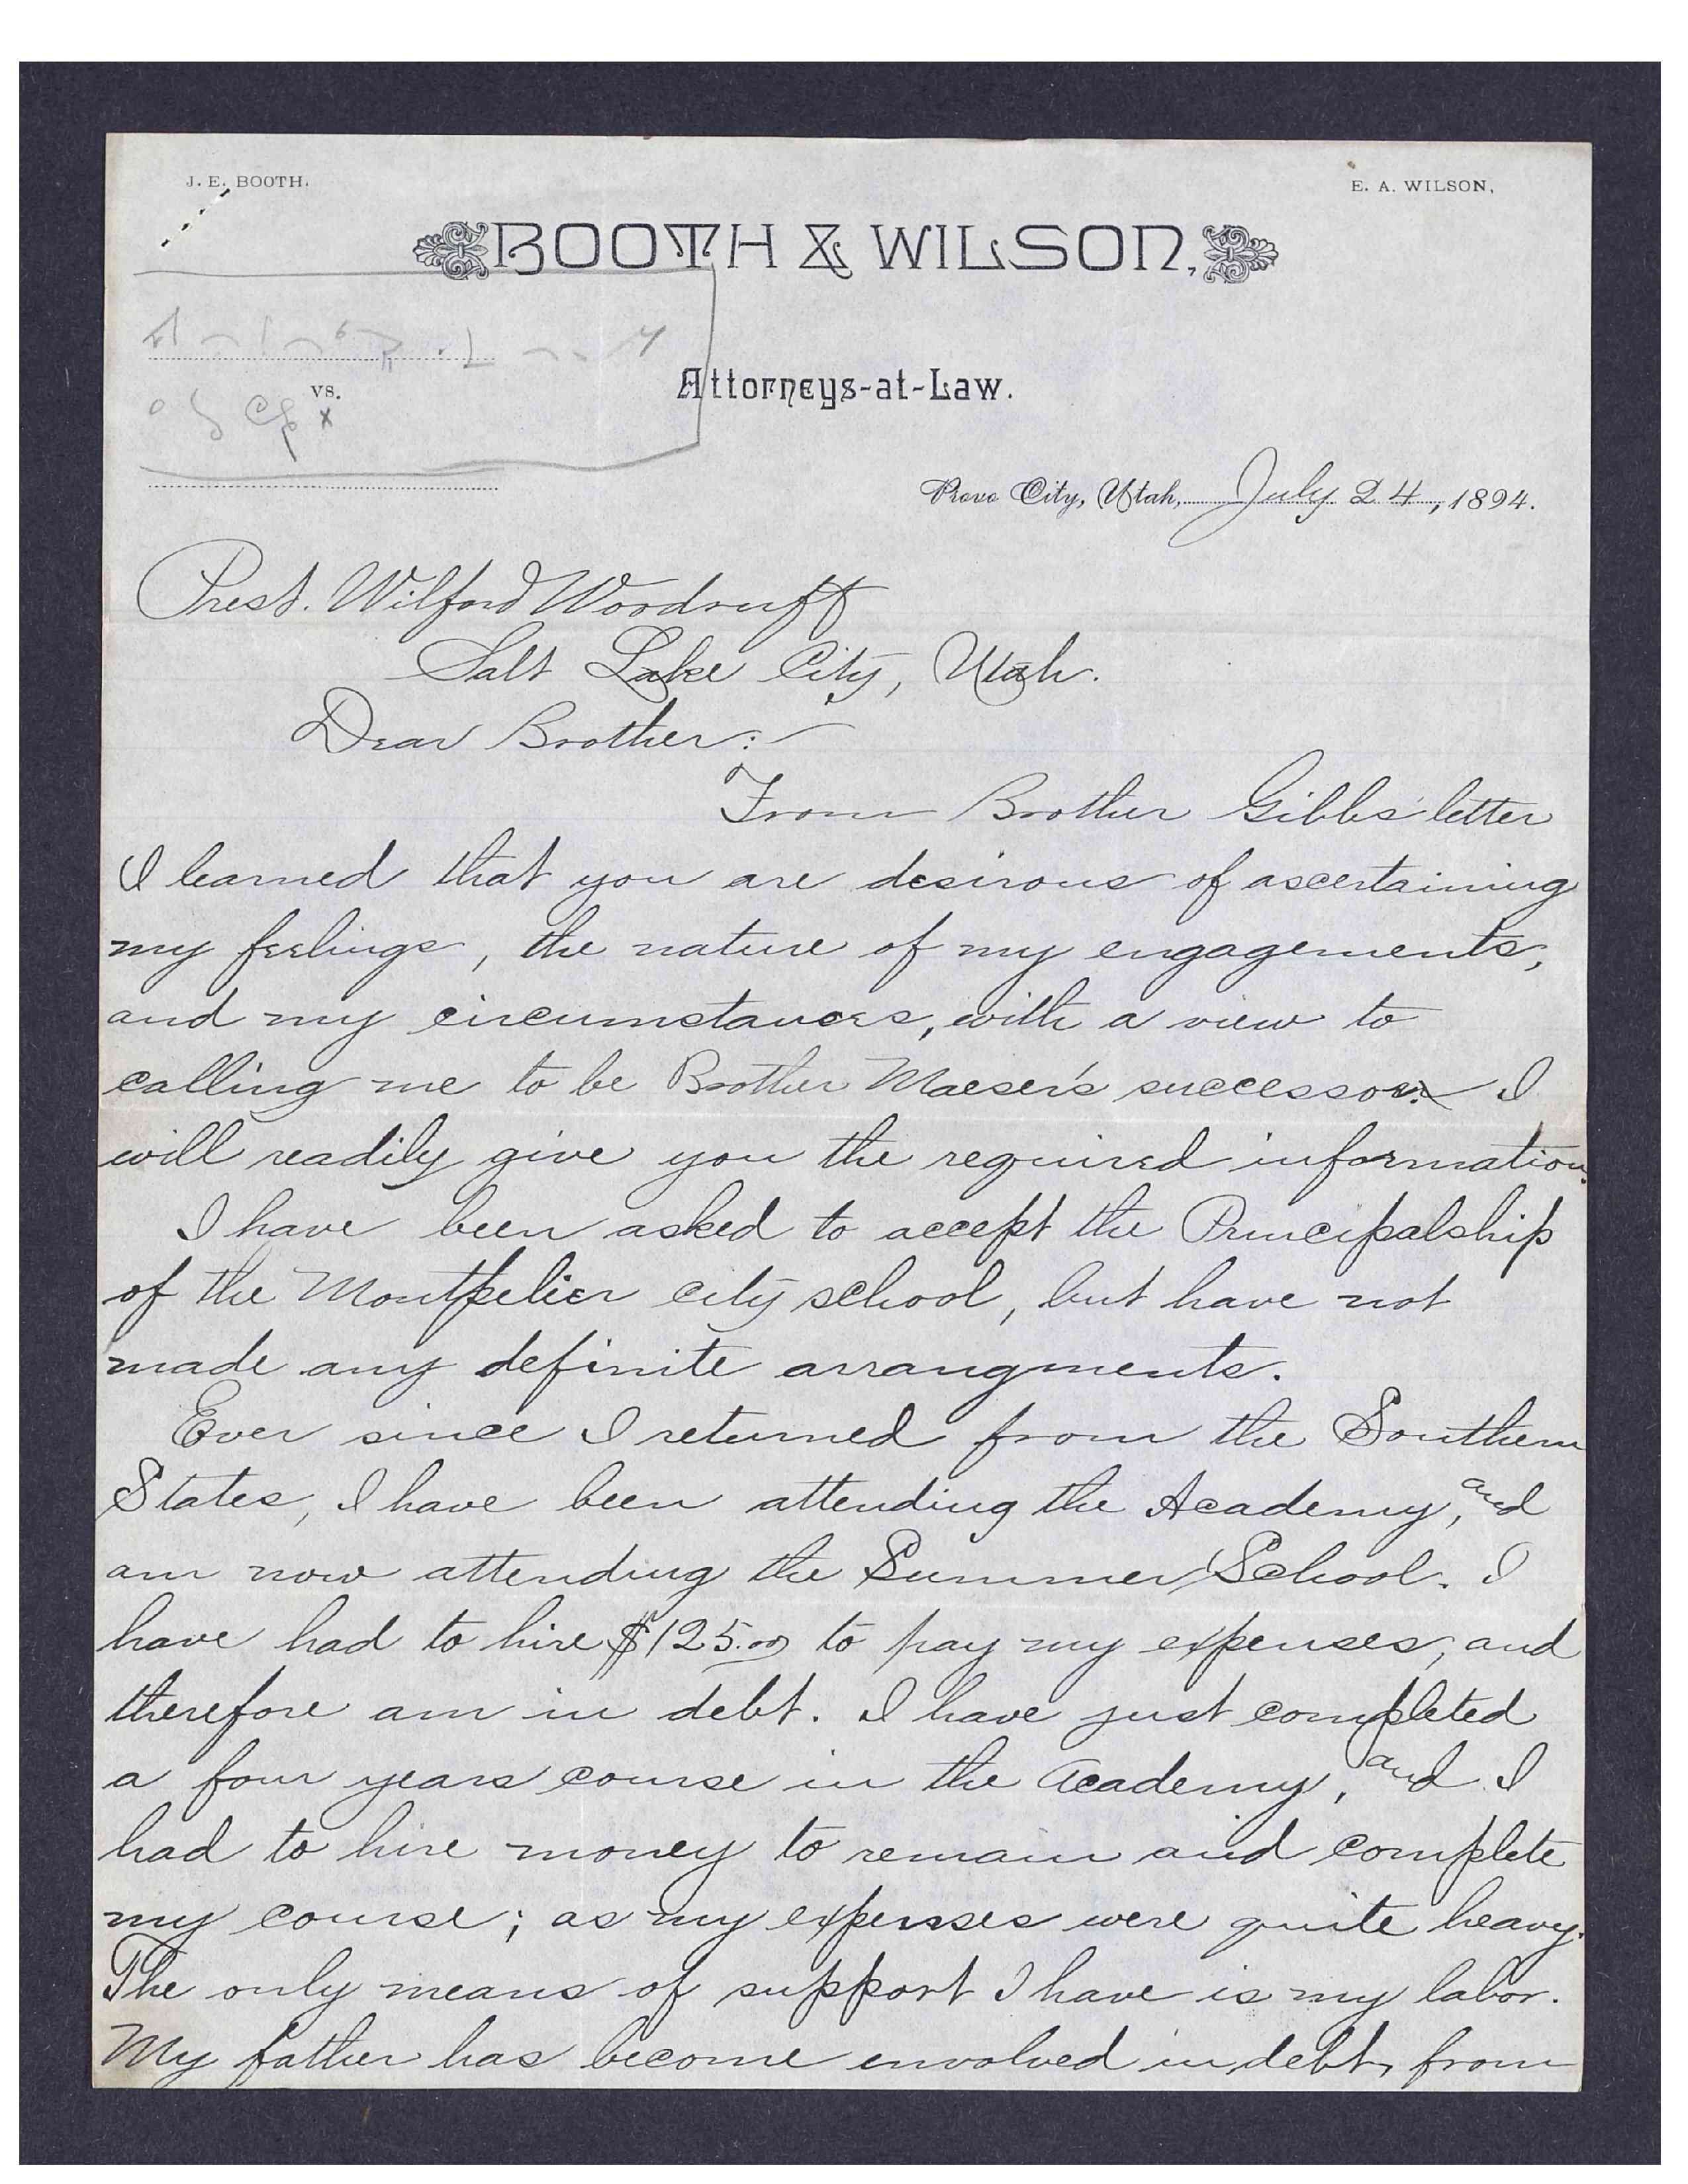 J. E. BOOTH.
E. A. WILSON,
BOOTH & WILSON,
vs.
Attorneys-at-Law.
Provo City, Utah, July 24, 1894.
Prest. Wilford Woodruff
Salt Lake City, Utah.
Dear Brother:
From Brother Gibbs' letter
I learned that you are desirous of ascertaining
my feelings, the nature of my engagements,
and my circumstances, with a view to
calling me to be Brother Maeser's successor. I
will readily give you the required information.
I have been asked to accept the Principalship
of the Montpelier city school, but have not
made any definite arrangments.
Ever since I returned from the Southern
States, I have been attending the Academy, and
am now attending the Summer School. I
have had to hire $125.00 to pay my expenses, and
therefore am in debt. I have just completed
a four years course in the Academy, and I
had to hire money to remain and complete
my course; as my expenses were quite heavy.
The only means of support I have is my labor.
My father has become envolved in debt, from